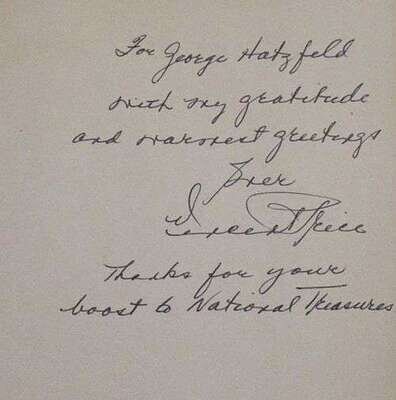 For George Hatzfeld
with my gratitude
and warmest greetings
Ever
Vincent Price
Thanks for your
boost to National Treasures